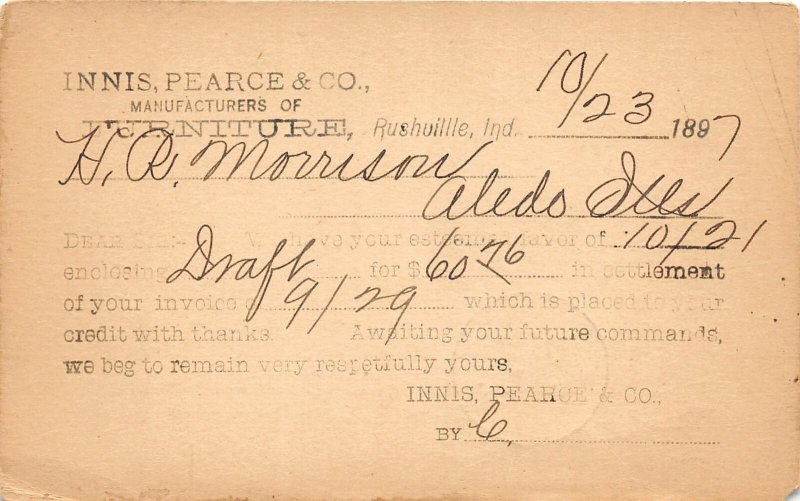 INNIS, PEARCE & CO.,
MANUFACTURERS OF
FURNITURE, Rushvillle, Ind. 10/23 1897
H. R. Morrison
Aledo Ills
DEAR SIR:- We have your esteemed favor of 10/21
enclosing Draft for $ 60 76 in settlement
of your invoice of 9/29 which is placed to your
credit with thanks. Awaiting your future commands,
we beg to remain very respetfully yours,
INNIS, PEARCE & CO.,
BY C,